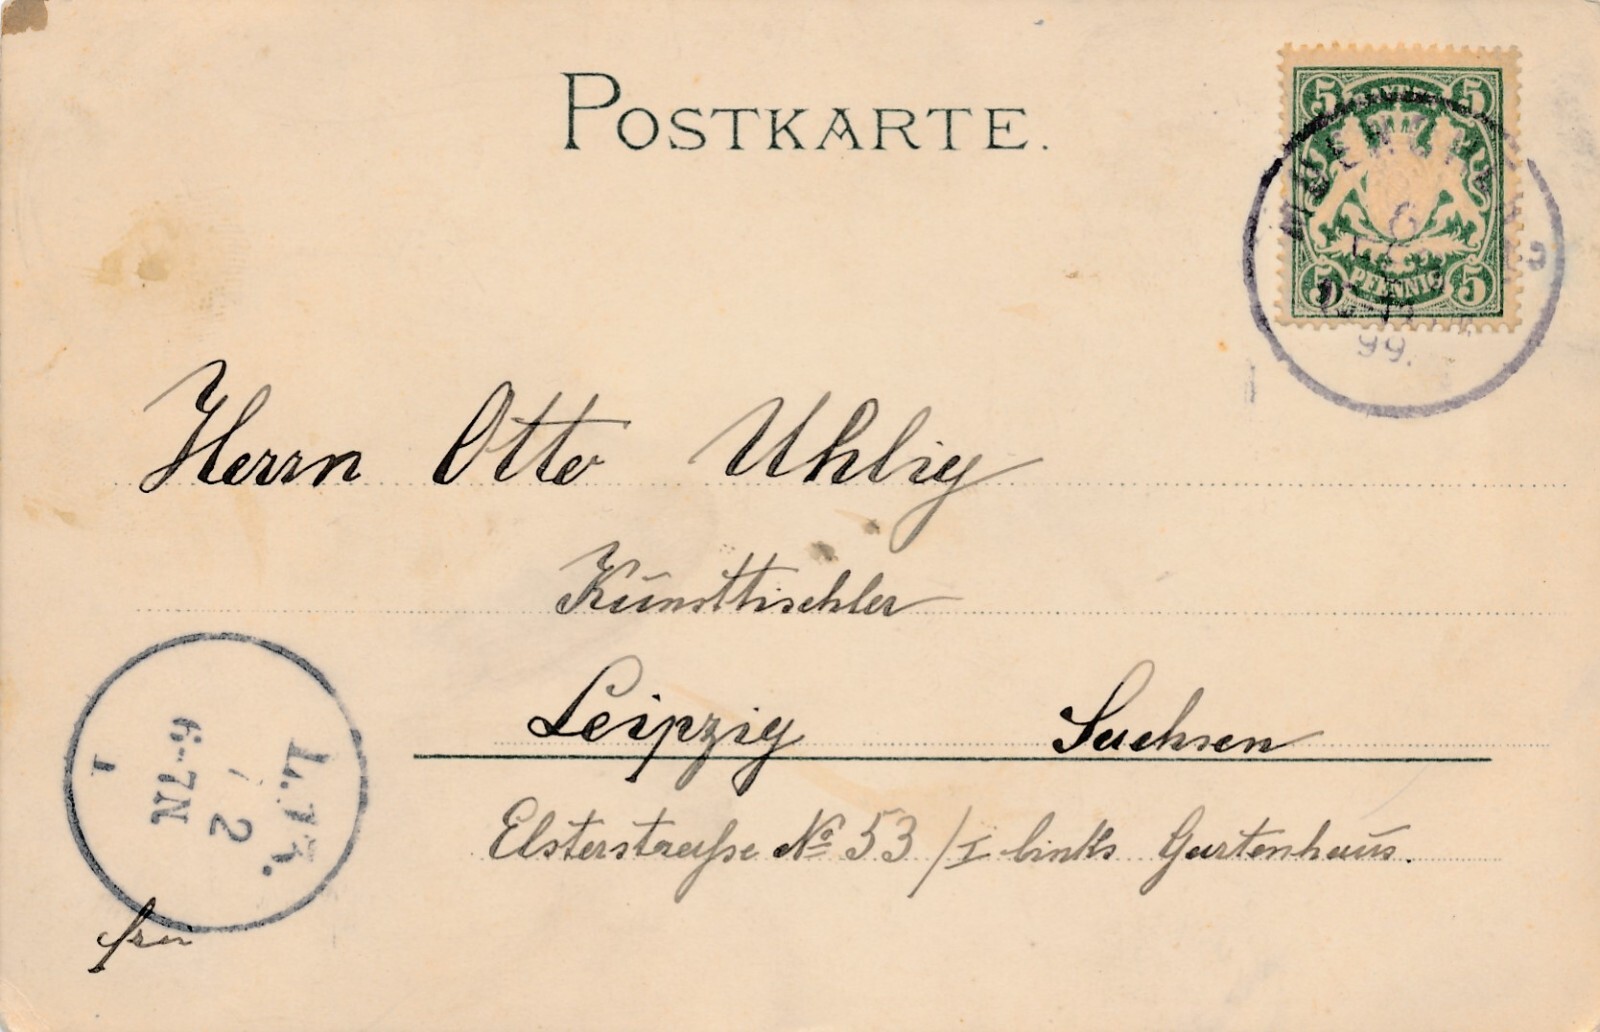 POSTKARTE.
5 5
MUENCHEN
6
5 PFENNIG 5
99.
Herrn Otto Uhlig
Kunsttischler
Leipzig Sachsen
Elsterstraße No 53/I links Gartenhaus.
L.
2
6-7N
1
frei